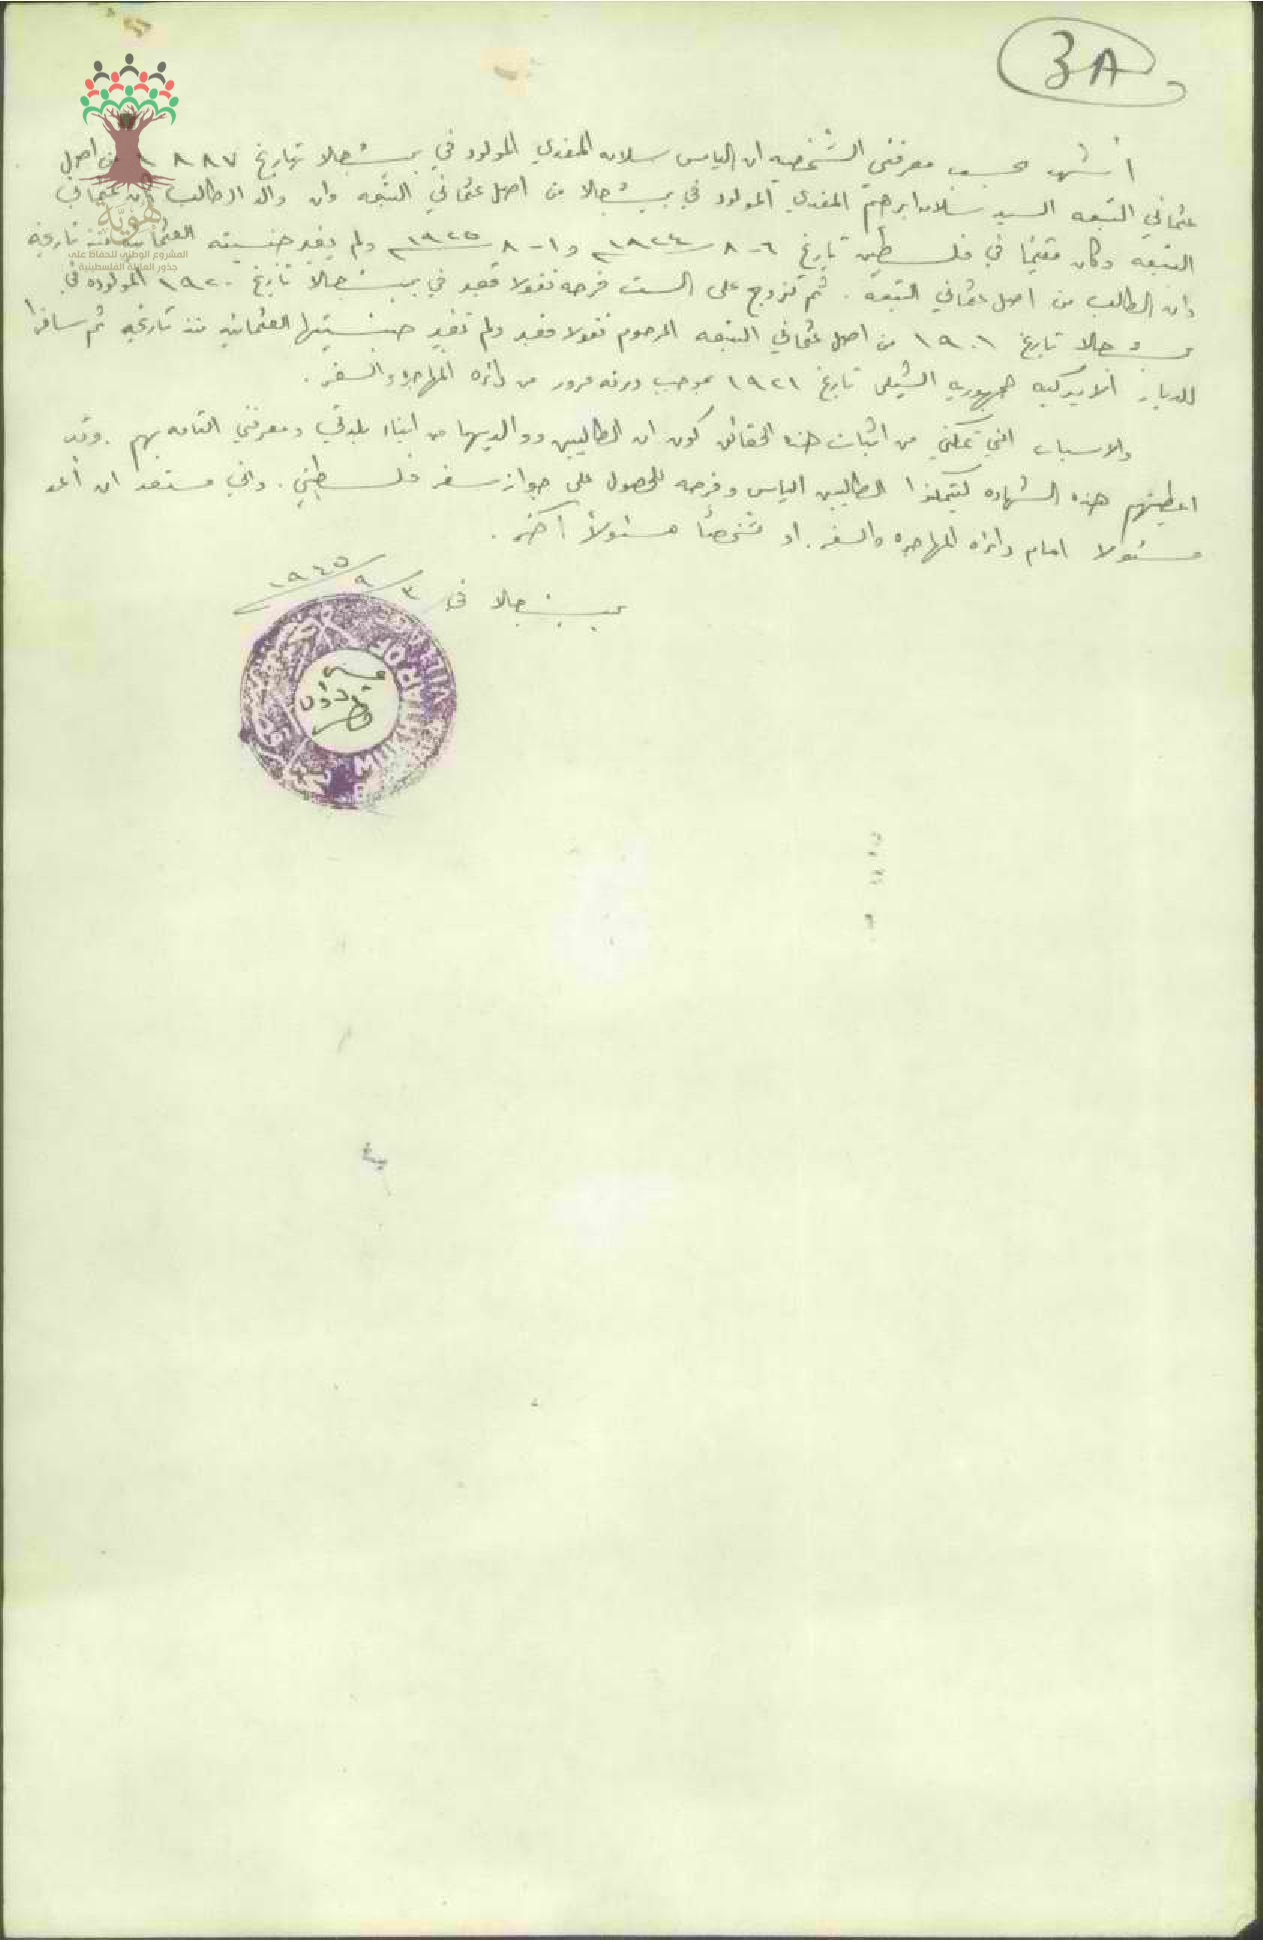 3A
أشهد بحسب معرفتي الشخصيه ان الياس سلامه المفدي المولود في بيت جالا بتاريخ ١٨٨٧ من اصل
عثماني التبعه السيد سلامه ابرهيم المفدي المولود في بيت جالا من اصل عثماني التبعه وان والد الطالب عثماني
التبعه وكان مقيما في فلسطين تاريخ ٦-٨-١٩٢٤م و ١-٨-١٩٢٥م ولم يغير جنسيته العثمانيه منذ تاريخه
وان الطالب من اصل عثماني التبعه . ثم تزوج على الست فرحه نقولا في بيت جالا تاريخ ١٩٢٠ المولوده في
بيت جالا تاريخ ١٩٠١ من اصل عثماني التبعه المرحوم نقولا ولم تغير جنسيتها العثمانيه منذ تاريخه ثم سافرا
للديار الاميركيه جمهورية الشيلي تاريخ ١٩٢١ بموجب ورقه مرور من دائرة المهاجره والسفر .
والاسباب التي تمكني من اثبات هذه الحقائق كون ان الطالبين ووالديهما من ابناء بلدتي ومعرفتي التامه بهم . وقد
اعطيتهم هذه الشهاده ليتمكنوا الطالبين الياس وفرحه للحصول على جواز سفر فلسطيني . واني مستعد ان أعد
مسئولا امام دائرة المهاجره والسفر . او شخصاً مسئولاً آخر .
بيت جالا في ٣/٩/١٩٤٥
MUKHTAR OF
هوية
المشروع الوطني للحفاظ على
جذور العائلة الفلسطينية